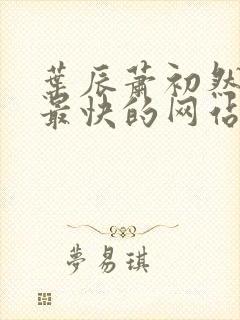 葉辰萧初然
最快的网站
夢易琪